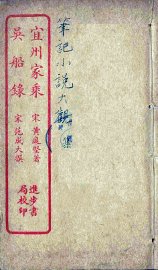 筆記小說大觀
宜州家乘
宋 黃庭堅著
吳船錄
宋 范成大撰
進步書
局校印